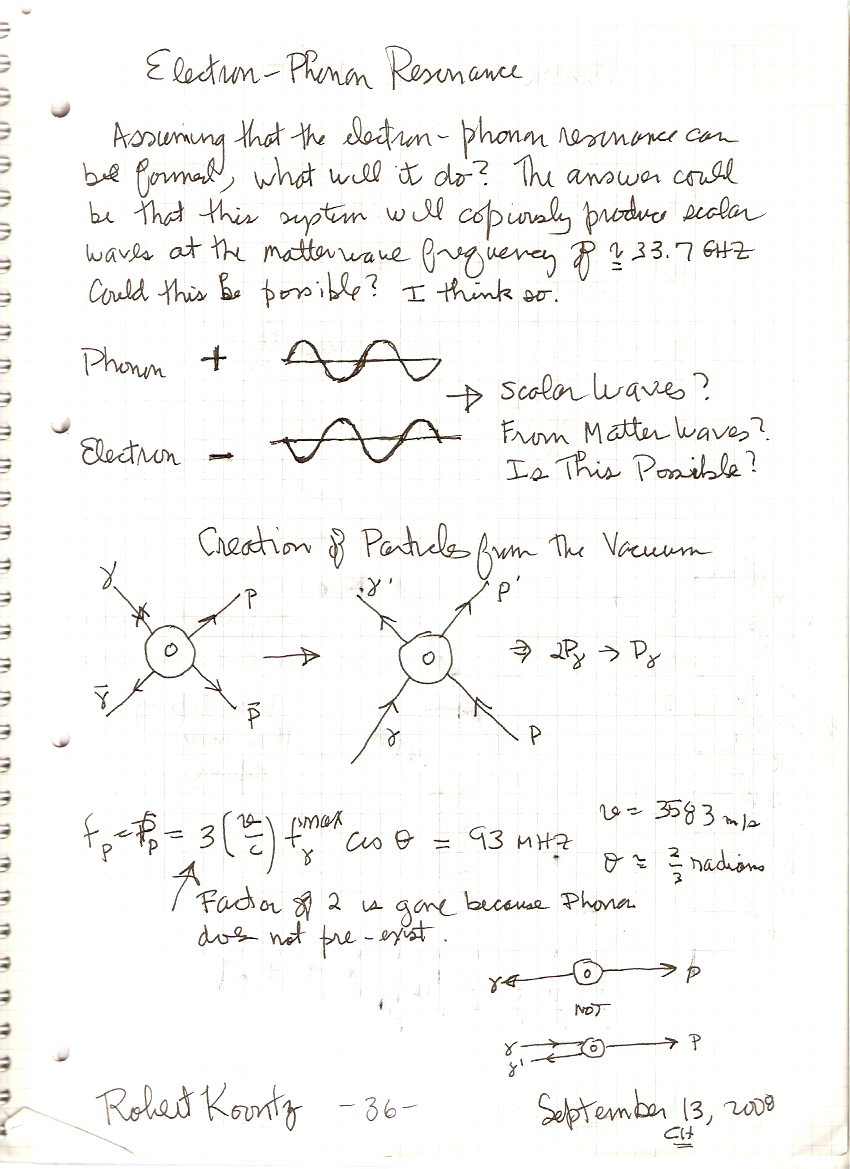 Electron-Phonon Resonance
Assuming that the electron-phonon resonance can
be formed, what will it do? The answer could
be that this system will copiously produce scalar
waves at the matterwave frequency of ≅ 33.7 GHZ
Could this be possible? I think so.
Phonon +
→ Scalar Waves?
From Matter Waves?
Electron -
Is This Possible?
Creation of Particles from the Vacuum
γ P γ' P'
O → O ⇒ 2Pγ → Pγ
γ̄ P̄ γ P
= 3 (v/c) fγ^max cos θ = 93 MHZ
v = 3583 m/s
θ ≅ 2/3 radians
Factor of 2 is gone because Phonon
does not pre-exist.
γ O P
NOT
γ O P
γ'
Robert Koontz -36- September 13, 2008
CH